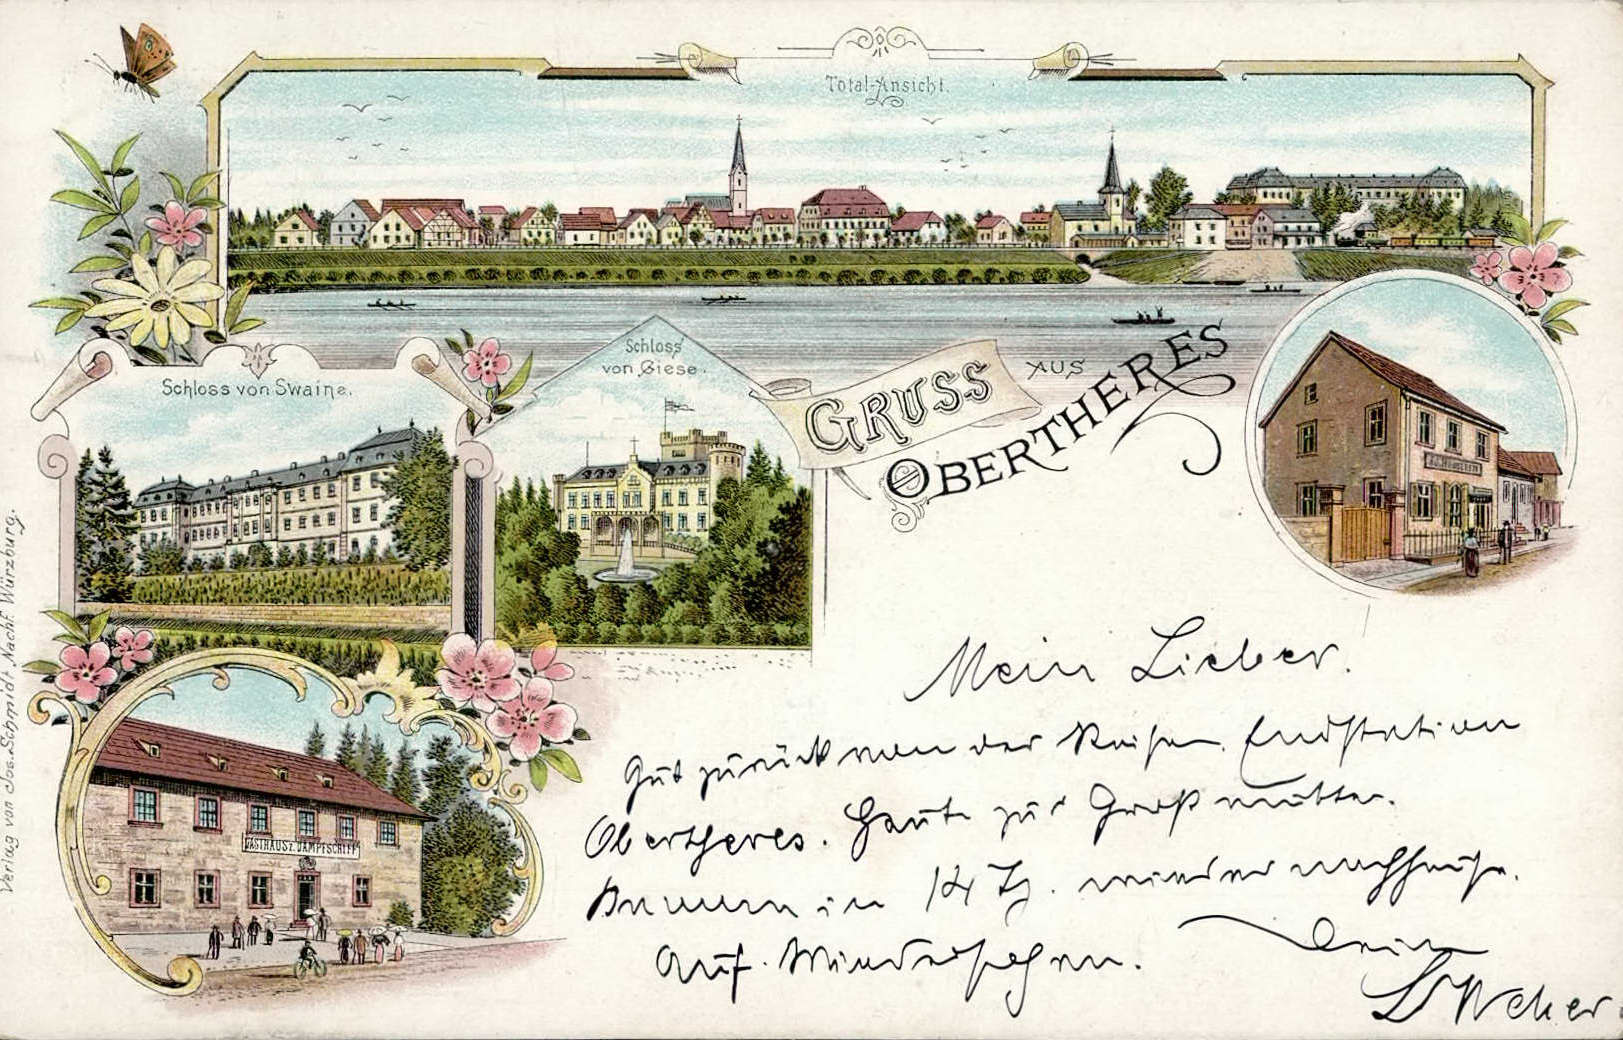 Total-Ansicht.
Schloss von Swaine.
Schloss
von Giese.
GRUSS
AUS
OBERTHERES
GASTHAUS Z. DAMPFSCHIFF
Verlag von Jos. Schmidt Nachf. Würzburg.
Mein Lieber.
Gut zurück von der Reise. Endstation
Obertheres. Heute zur Großmutter.
Komme in 14 Tg. wieder nachhause.
Auf Wiedersehen.
Dein
Weber.